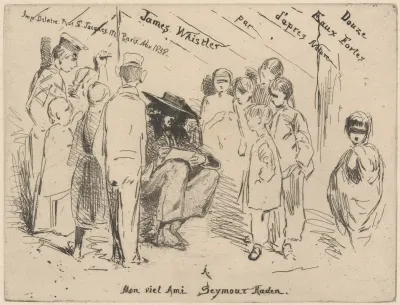 Imp. Delatre. Rue St. Jacques 171.
Paris. Nov. 1858.
James Whistler
par
d'après
Nature
Douze
Eaux Fortes
A
Mon viel Ami Seymour Haden.